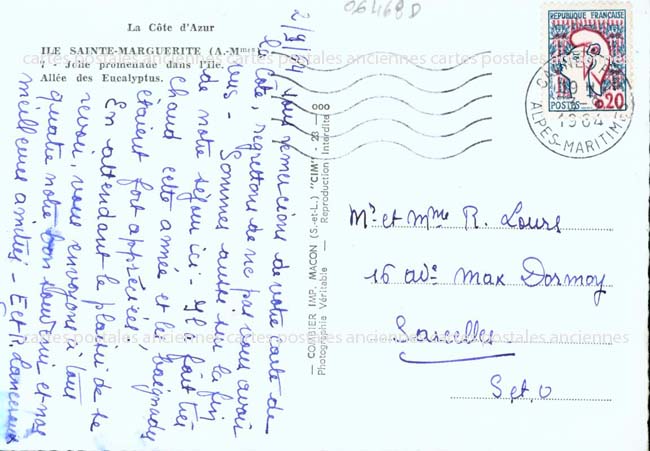 06468D
La Côte d'Azur
ILE SAINTE-MARGUERITE (A.-Mmes)
Jolie promenade dans l'île.
Allée des Eucalyptus.
2/9/64 Vous remercions de votre carte de
la côte, regrettons de ne pas vous avoir
vus - Sommes aussi sur la fin
de notre séjour ici - Il a fait très
chaud cette année et les baignades
étaient fort appréciées,
En attendant le plaisir de se
revoir, vous envoyons à tous
quatre notre bon souvenir et nos
meilleures amitiés - E et P. Lancereux
COMBIER IMP. MACON (S.-et-L.) "CIM" - 23 - 000
Photographie Véritable - Reproduction Interdite
REPUBLIQUE FRANÇAISE
POSTES
0,20
CANNES
1964
ALPES-MARITIMES
Mr et Mme R. Lours
16 ave Max Dormoy
Sarcelles
S et O
cartes postales anciennes cartes postales anciennes cartes postales anciennes
cartes postales anciennes cartes postales anciennes cartes postales anciennes